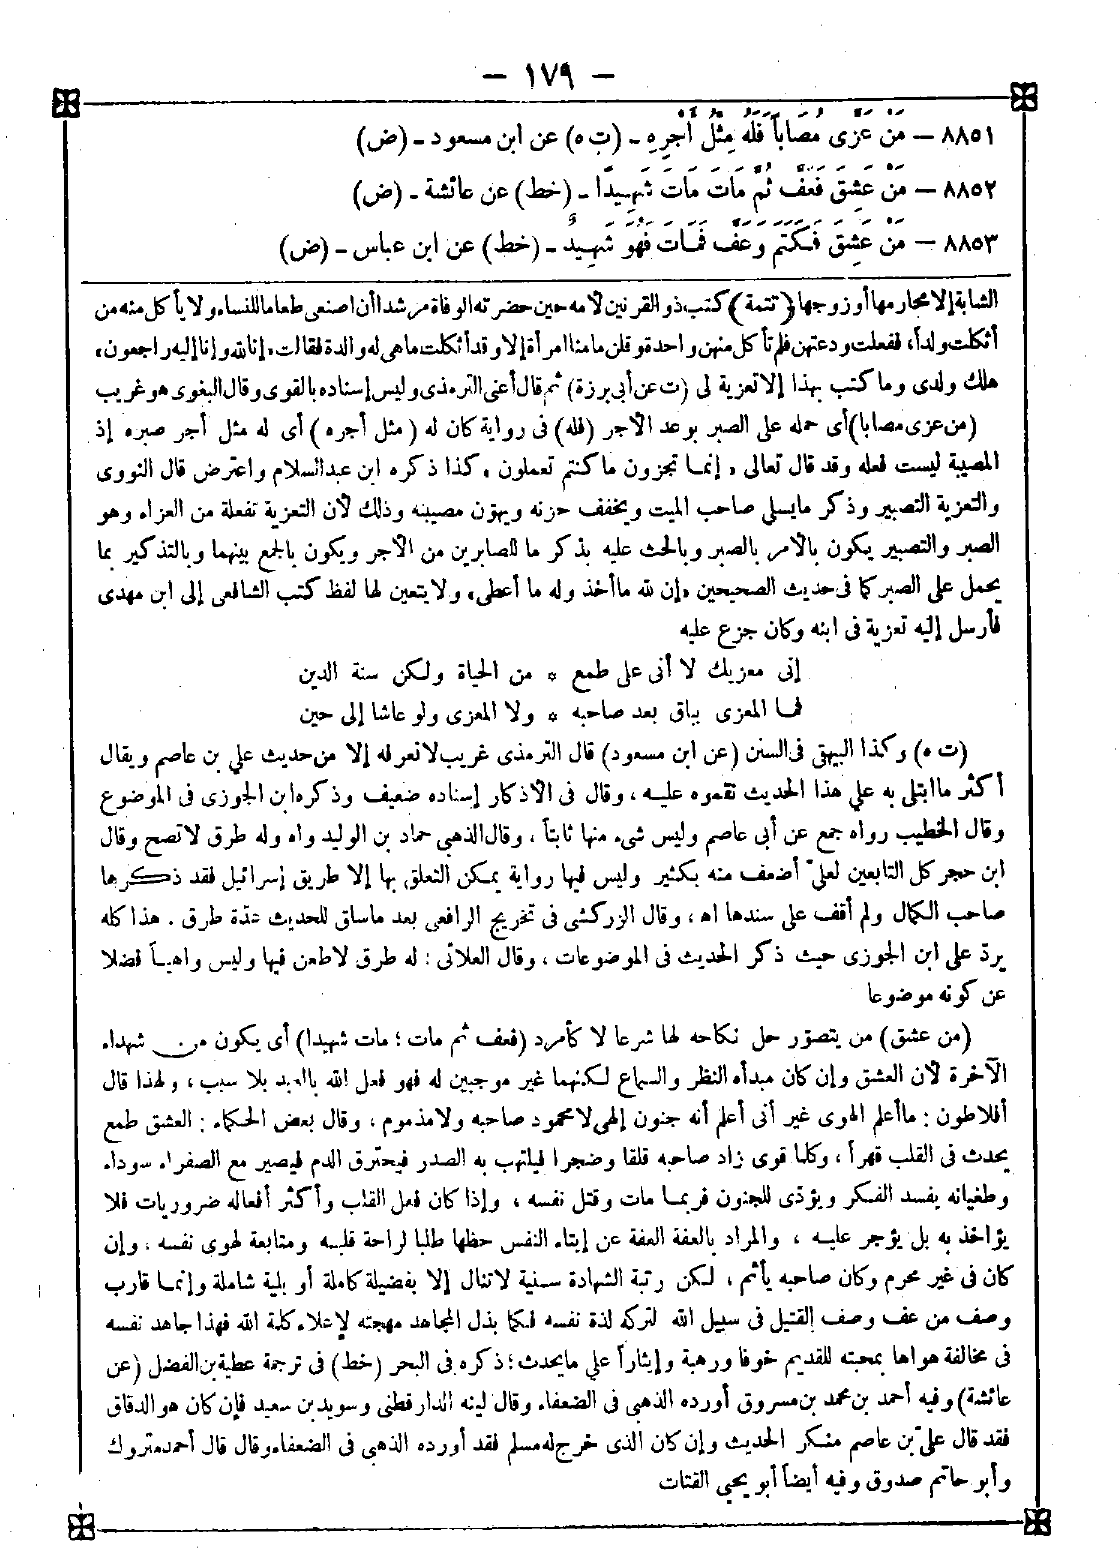 — ١٧٩ —
٨٨٥١ — مَنْ عَزَّى مُصَاباً فَلَهُ مِثْلُ أَجْرِهِ - (ت ه) عن ابن مسعود - (ض)
٨٨٥٢ — مَنْ عَشِقَ فَعَفَّ ثُمَّ مَاتَ مَاتَ شَهِيدًا - (خط) عن عائشة - (ض)
٨٨٥٣ — مَنْ عَشِقَ فَكَتَمَ وَعَفَّ فَمَاتَ فَهُوَ شَهِيدٌ - (خط) عن ابن عباس - (ض)
الشابة إلا محارمها أو زوجها (تتمة) كتب ذو القرنين لأمه حين حضرته الوفاة مرشدا أن اصنعى طعاما للنساء ولا يأكل منه من
أثكلت ولداً، ففعلت ودعتهن فلم تأكل منهن واحدة وقلن مامنا امرأة إلا وقد أثكلت ماهى له والدة فقالت «إنا لله وإنا إليه راجعون»
هلك ولدى وما كتب بهذا إلا تعزية لى (ت عن أبى برزة) ثم قال أعنى الترمذى وليس إسناده بالقوى وقال البغوى هو غريب
(من عزى مصابا) أى حمله على الصبر بوعد الأجر (فله) فى رواية كان له (مثل أجره) أى له مثل أجر صبره إذ
المصيبة ليست فعله وقد قال تعالى «إنما تجزون ما كنتم تعملون» كذا ذكره ابن عبد السلام واعترض قال النووى
والتعزية التصبير وذكر مايسلى صاحب الميت ويخفف حزنه ويهون مصيبته وذلك لأن التعزية تفعلة من العزاء وهو
الصبر والتصبير يكون بالأمر بالصبر وبالحث عليه بذكر ما للصابرين من الأجر ويكون بالجمع بينهما وبالتذكير بما
يحمل على الصبر كما فى حديث الصحيحين «إن لله ما أخذ وله ما أعطى» ولا يتعين لها لفظ كتب الشافعى إلى ابن مهدى
فأرسل إليه تعزية فى ابنه وكان جزع عليه
إنى معزيك لا أنى على طمع * من الحياة ولكن سنة الدين
فما المعزى بباق بعد صاحبه * ولا المعزى ولو عاشا إلى حين
(ت ه) وكذا البيهقى فى السنن (عن ابن مسعود) قال الترمذى غريب لا نعرفه إلا من حديث على بن عاصم ويقال
أكثر ما ابتلى به على هذا الحديث نقموه عليه، وقال فى الأذكار إسناده ضعيف وذكره ابن الجوزى فى الموضوع
وقال الخطيب رواه جمع عن أبى عاصم وليس شىء منها ثابتاً، وقال الذهبى حماد بن الوليد واه وله طرق لا تصح وقال
ابن حجر كل التابعين لعلىّ أضعف منه بكثير وليس فيها رواية يمكن التعلق بها إلا طريق إسرائيل فقد ذكرها
صاحب الكمال ولم أقف على سندها اه، وقال الزركشى فى تخريج الرافعى بعد ماساق للحديث عدّة طرق. هذا كله
يردّ على ابن الجوزى حيث ذكر الحديث فى الموضوعات، وقال العلائى: له طرق لا طعن فيها وليس واهياً فضلا
عن كونه موضوعا
(من عشق) من يتصوّر حل نكاحه لها شرعا لا كأمرد (فعف ثم مات؛ مات شهيدا) أى يكون من شهداء
الآخرة لأن العشق وإن كان مبدأه النظر والسماع لكنهما غير موجبين له فهو فعل الله بالعبد بلا سبب، ولهذا قال
أفلاطون: ما أعلم الهوى غير أنى أعلم أنه جنون إلهى لا محمود صاحبه ولا مذموم، وقال بعض الحكماء: العشق طمع
يحدث فى القلب قهراً، وكلما قوى زاد صاحبه قلقا وضجرا فيلتهب به الصدر فيحترق الدم فيصير مع الصفراء سوداء
وطغيانه يفسد الفكر ويؤدّى للجنون فربما مات وقتل نفسه، وإذا كان فعل القلب وأكثر أفعاله ضروريات فلا
يؤاخذ به بل يؤجر عليه، والمراد بالعفة العفة عن إيتاء النفس حظها طلبا لراحة قلبه ومتابعة لهوى نفسه، وإن
كان فى غير محرم وكان صاحبه يأثم، لكن رتبة الشهادة سنية لا تنال إلا بفضيلة كاملة أو بلية شاملة وإنما قارب
وصف من عف وصف القتيل فى سبيل الله لتركه لذة نفسه فكما بذل المجاهد مهجته لإعلاء كلمة الله فهذا جاهد نفسه
فى مخالفة هواها بمحبته للقديم خوفا ورهبة وإيثاراً على ما يحدث؛ ذكره فى البحر (خط) فى ترجمة عطية بن الفضل (عن
عائشة) وفيه أحمد بن محمد بن مسروق أورده الذهبى فى الضعفاء وقال لينه الدارقطنى وسويد بن سعيد فإن كان هو الدقاق
فقد قال علىّ بن عاصم منكر الحديث وإن كان الذى خرج له مسلم فقد أورده الذهبى فى الضعفاء وقال قال أحمد متروك
وأبو حاتم صدوق وفيه أيضاً أبو يحيى القتات